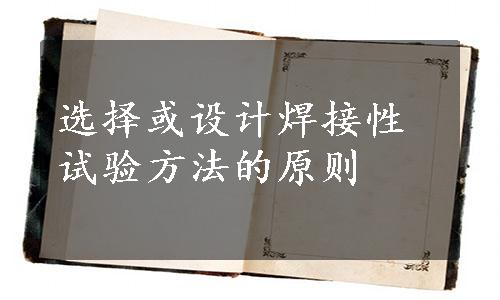 选择或设计焊接性
试验方法的原则